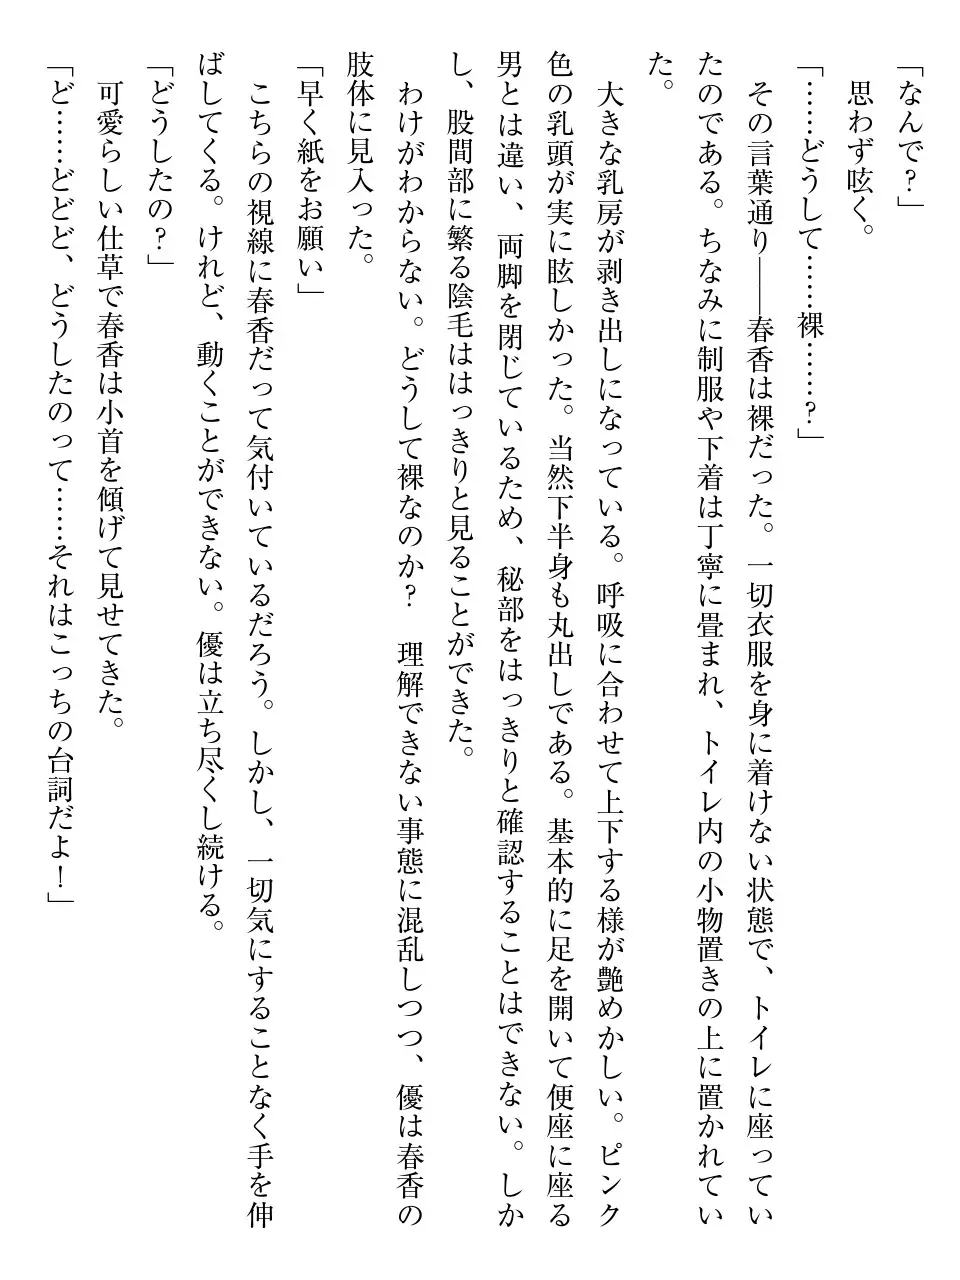 「なんで？」
思わず呟く。
「……どうして……裸……？」
その言葉通り――春香は裸だった。一切衣服を身に着けない状態で、トイレに座ってい
たのである。ちなみに制服や下着は丁寧に畳まれ、トイレ内の小物置きの上に置かれてい
た。
大きな乳房が剥き出しになっている。呼吸に合わせて上下する様が艶めかしい。ピンク
色の乳頭が実に眩しかった。当然下半身も丸出しである。基本的に足を開いて便座に座る
男とは違い、両脚を閉じているため、秘部をはっきりと確認することはできない。しか
し、股間部に繁る陰毛ははっきりと見ることができた。
わけがわからない。どうして裸なのか？　理解できない事態に混乱しつつ、優は春香の
肢体に見入った。
「早く紙をお願い」
こちらの視線に春香だって気付いているだろう。しかし、一切気にすることなく手を伸
ばしてくる。けれど、動くことができない。優は立ち尽くし続ける。
「どうしたの？」
可愛らしい仕草で春香は小首を傾げて見せてきた。
「ど……どどど、どうしたのって……それはこっちの台詞だよ！」